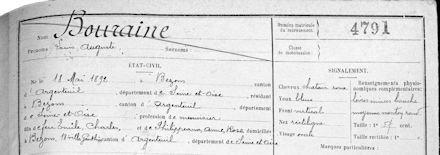 Nom : Bouraine
Numéro matricule du recrutement : 4791
Prénoms : Auguste Surnoms :
Classe de mobilisation :
ÉTAT-CIVIL.
SIGNALEMENT.
Né le 18 Mai 1892, à Bezons, canton
d'Argenteuil, département de Seine et Oise, résidant
à Bezons, canton d'Argenteuil, département
de Seine et Oise, profession de menuisier
fils de feu Emile, Charles, et de Philippine, Anne, Rosa domiciliés
à Bezons, canton d'Argenteuil, département de Seine et Oise
Cheveux chatain
Yeux bleus
Front vertical
Nez rectiligne
Visage ovale
Renseignements physionomiques complémentaires :
Taille : 1m
Taille rectifiée : 1m
Marques particulières :